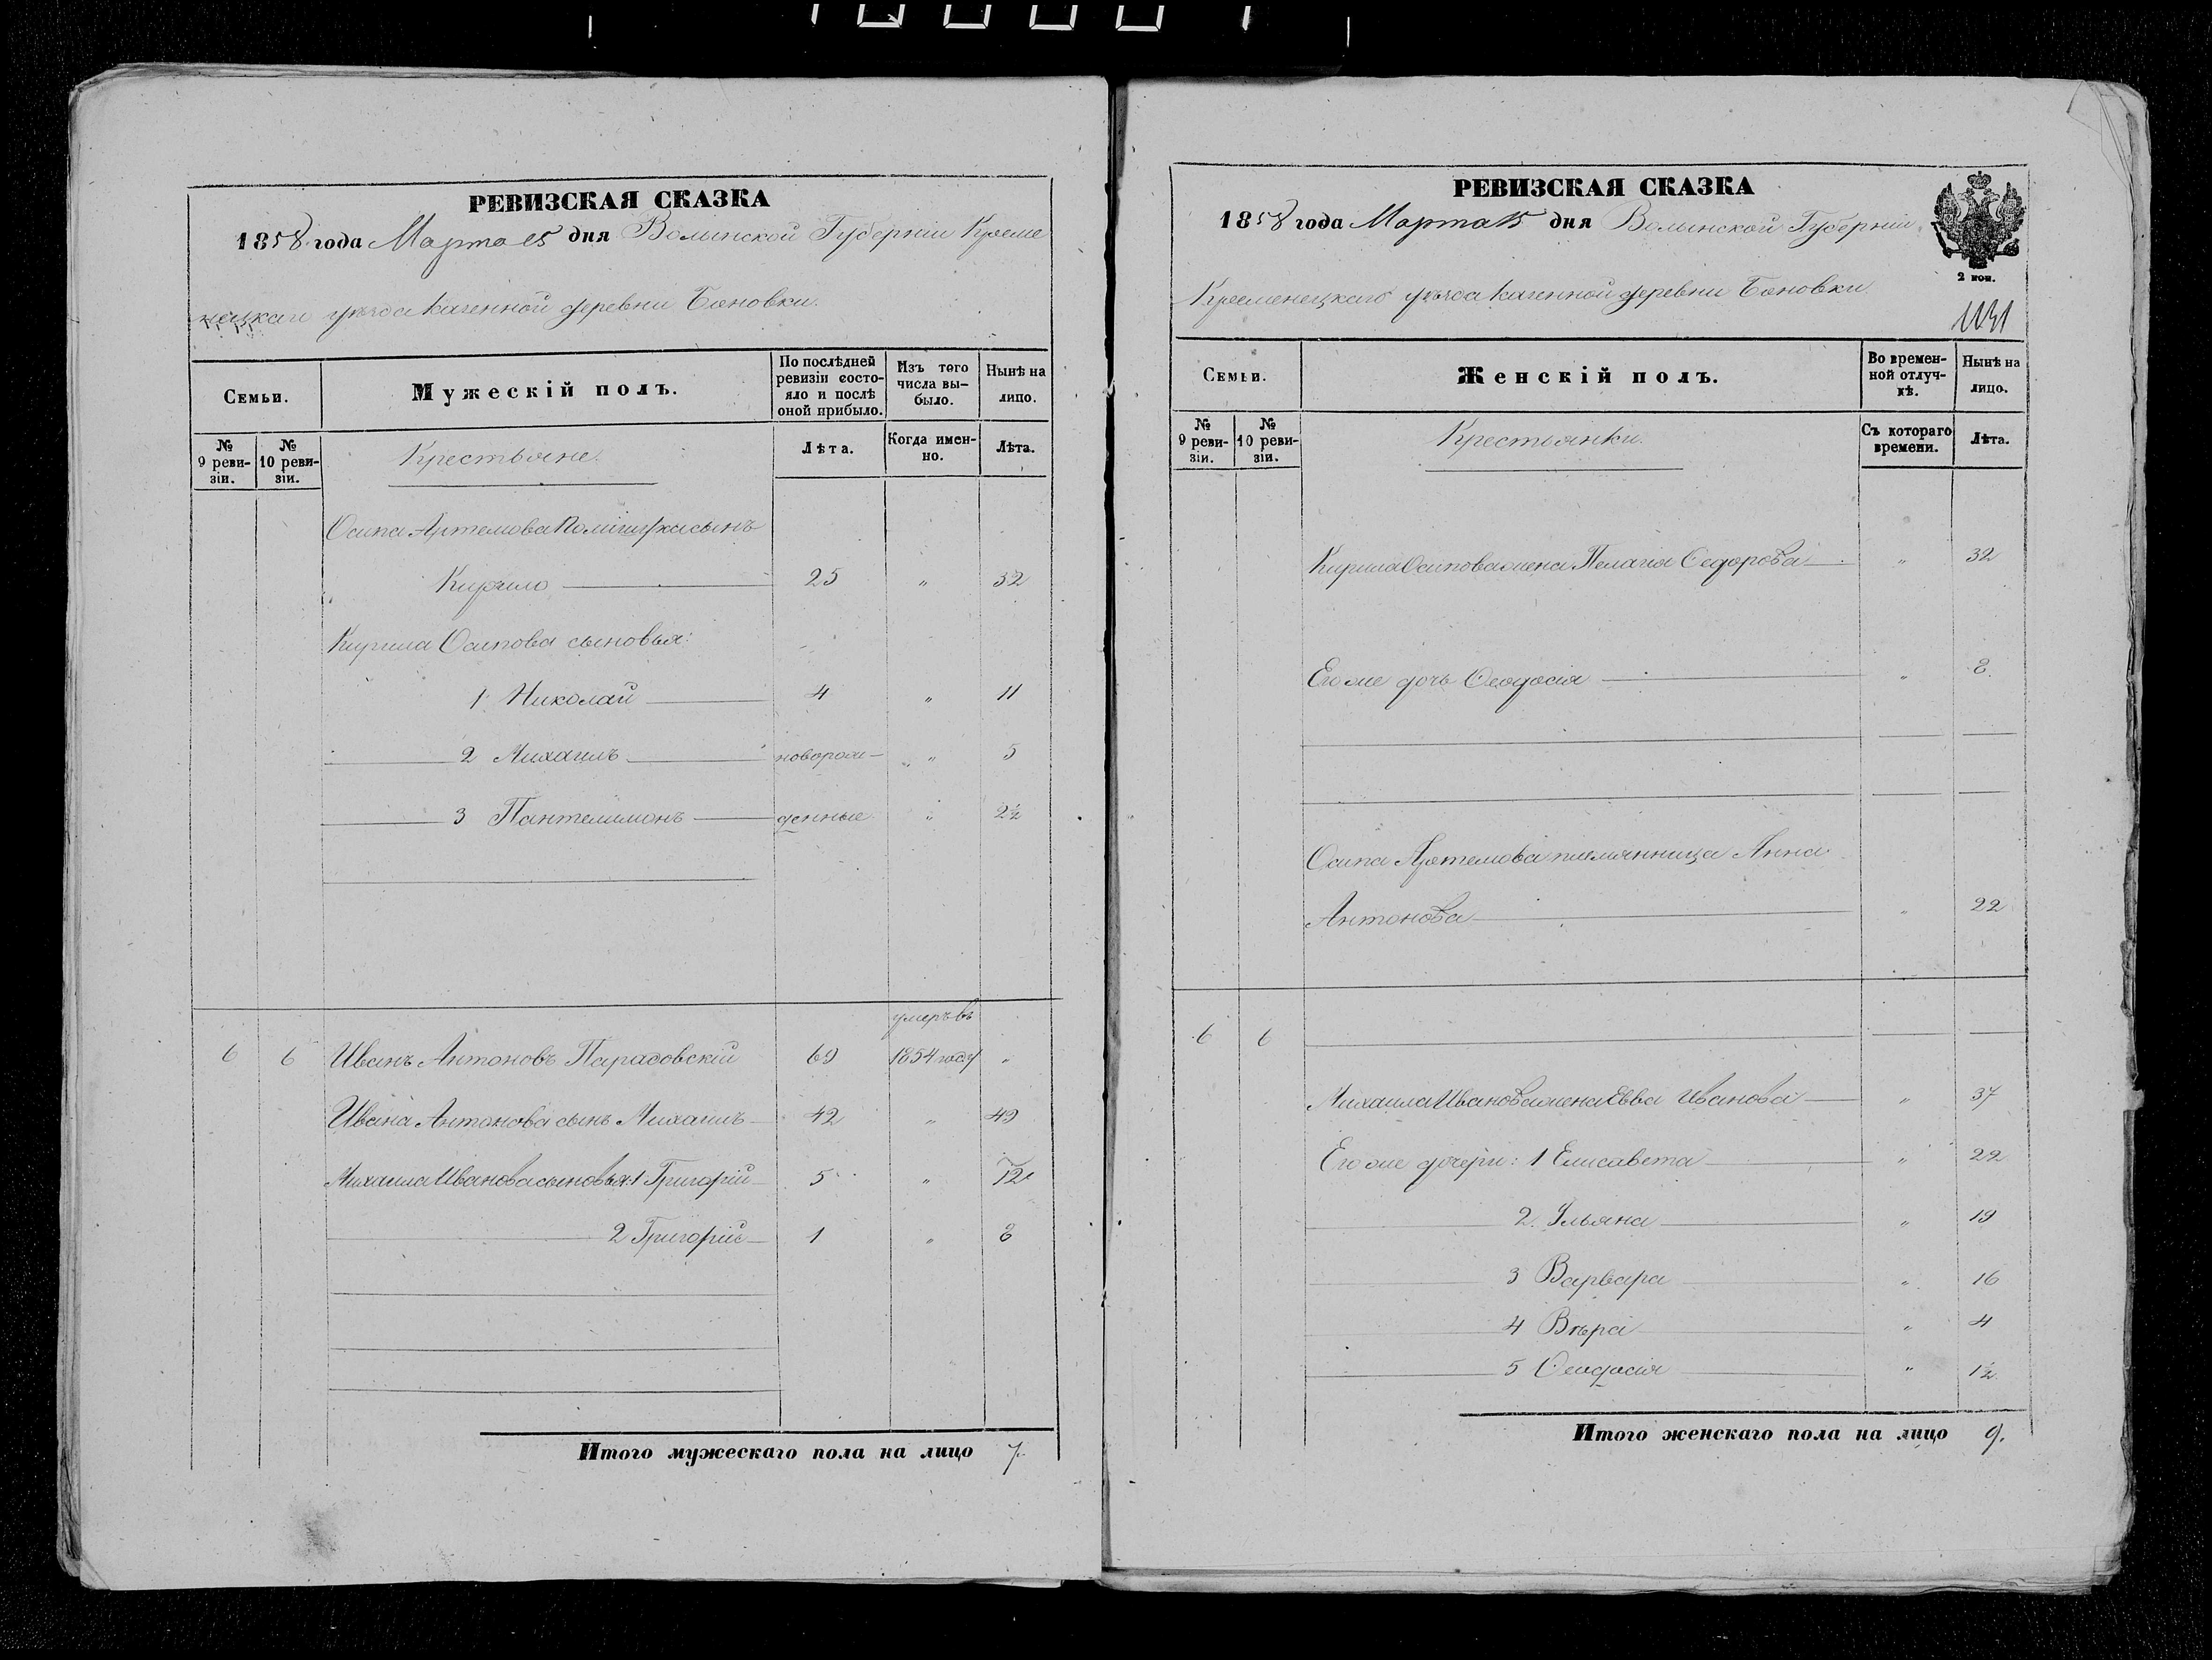 РЕВИЗСКАЯ СКАЗКА
1858 года Марта 15 дня Волынской Губерніи Креме
нецкаго уѣзда казенной деревни Боновки.
Семьи.
Мужескій полъ.
По послѣдней ревизіи состояло и послѣ оной прибыло.
Изъ того числа вы-было.
Нынѣ на лицо.
№ 9 реви-зіи.
№ 10 реви-зіи.
Крестьяне.
Лѣта.
Когда имен-но.
Лѣта.
Осипа Артемова сынъ
Кирило 25 " 32
Кирила Осипова сыновья:
1 Николай 4 " 11
2 Михаилъ новорож- " 5
3 Пантелимонъ денные " 2½
умеръ въ
6 6 Иванъ Антоновъ Парадовскій 69 1854 году "
Ивана Антонова сынъ Михаилъ 42 " 49
Михаила Иванова сыновья: 1 Григорій 5 " 12
2 Григорій 1 " 8
Итого мужескаго пола на лицо 7.
РЕВИЗСКАЯ СКАЗКА
1858 года Марта 15 дня Волынской Губерніи
2 коп.
Кременецкаго уѣзда казенной деревни Боновки
1131
Семьи.
Женскій полъ.
Во времен-ной отлуч-кѣ.
Нынѣ на лицо.
№ 9 реви-зіи.
№ 10 реви-зіи.
Крестьянки.
Съ котораго времени.
Лѣта.
Кирила Осипова жена Пелагія Ѳедорова " 32
Его же дочь Ѳеодосія " 8.
Осипа Артемова племянница Анна
Антонова " 22
6 6
Михаила Иванова жена Евва Иванова " 37
Его же дочери: 1 Елисавета " 22
2. Ульяна " 19
3 Варвара " 16
4 Вѣра " 4
5 Ѳеодосія " 1½
Итого женскаго пола на лицо 9.